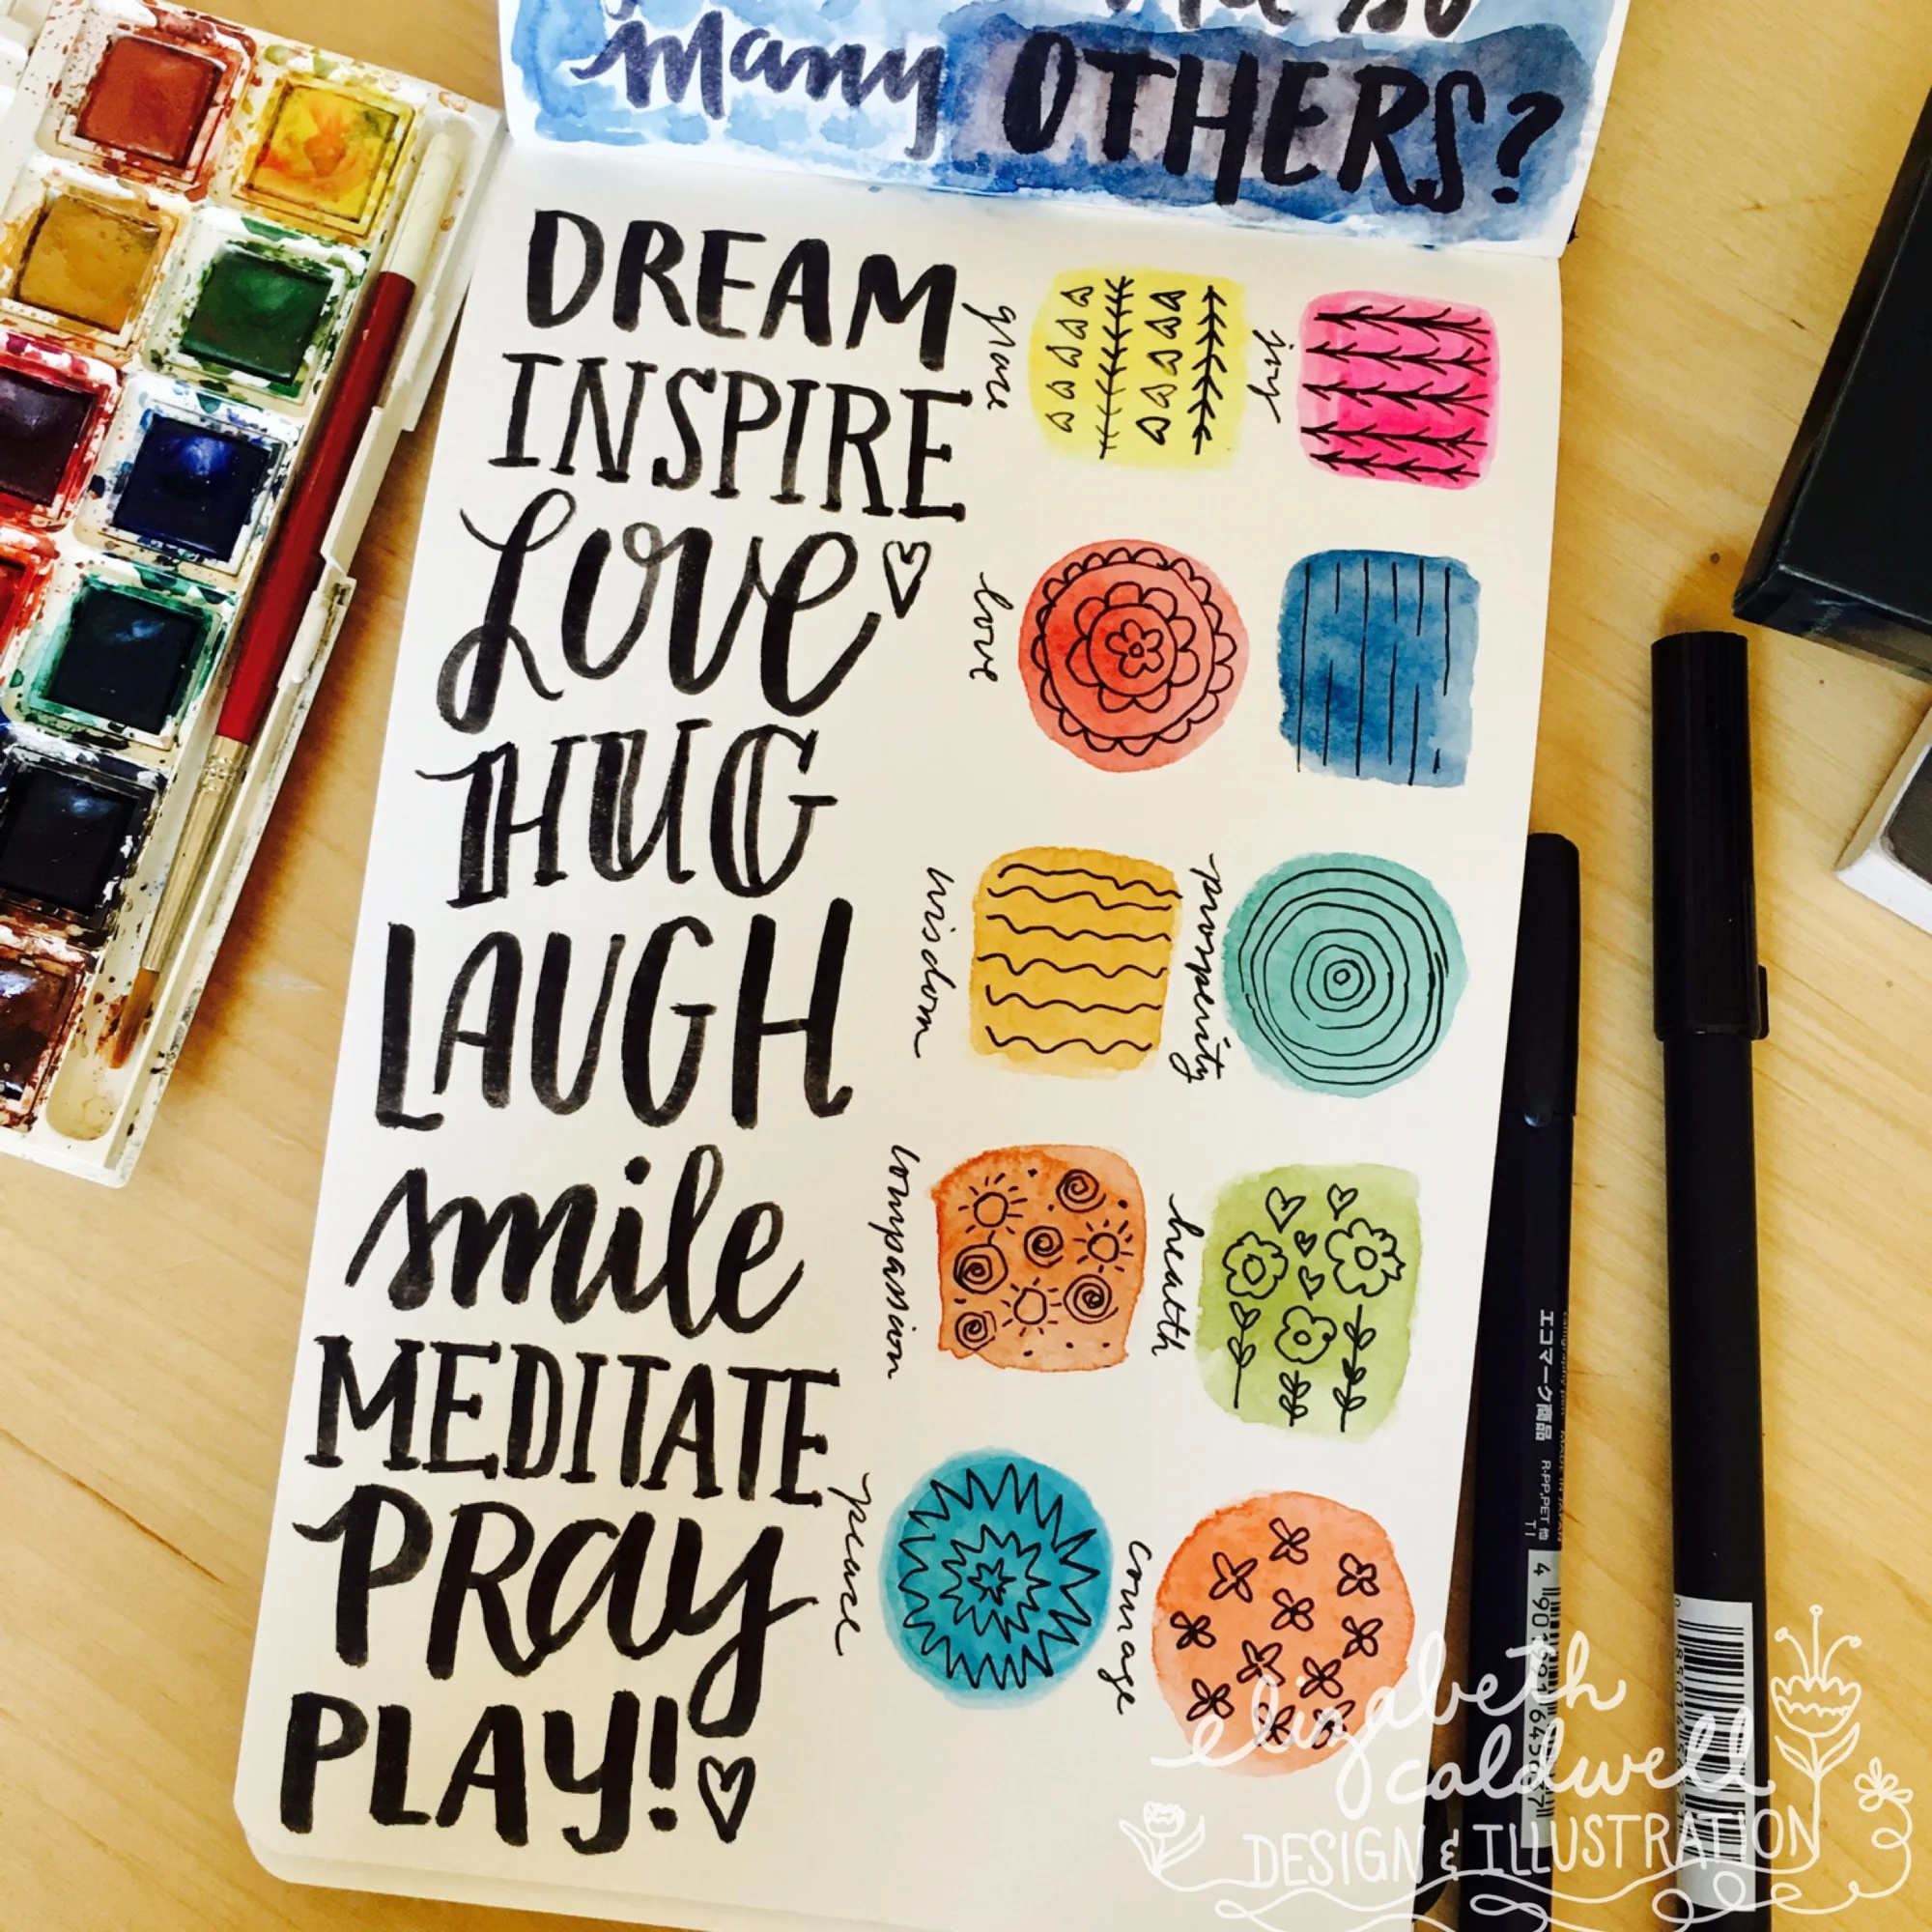 many OTHERS?
DREAM
INSPIRE
Love
HUG
LAUGH
smile
MEDITATE
PRay
PLAY!
grace
joy
love
wisdom
prosperity
compassion
health
peace
courage
エコマーク商品
R-PP,PET 他
elizabeth
caldwell
DESIGN & ILLUSTRATION